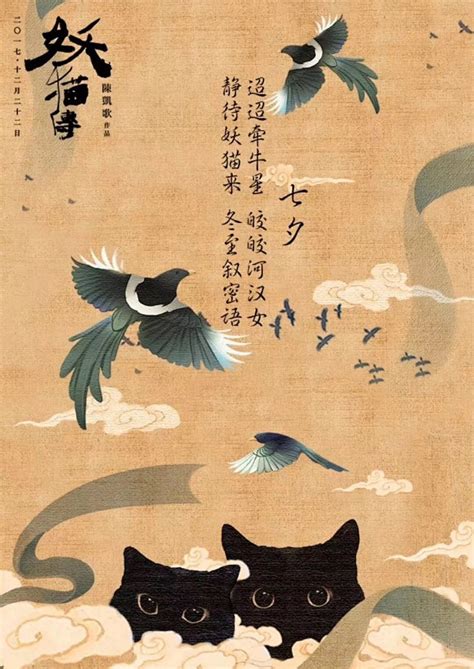 七夕
迢迢牵牛星 皎皎河汉女
静待妖猫来 冬至叙密语
陳凱歌 作品
妖猫傳
二〇一七·十二月二十二日